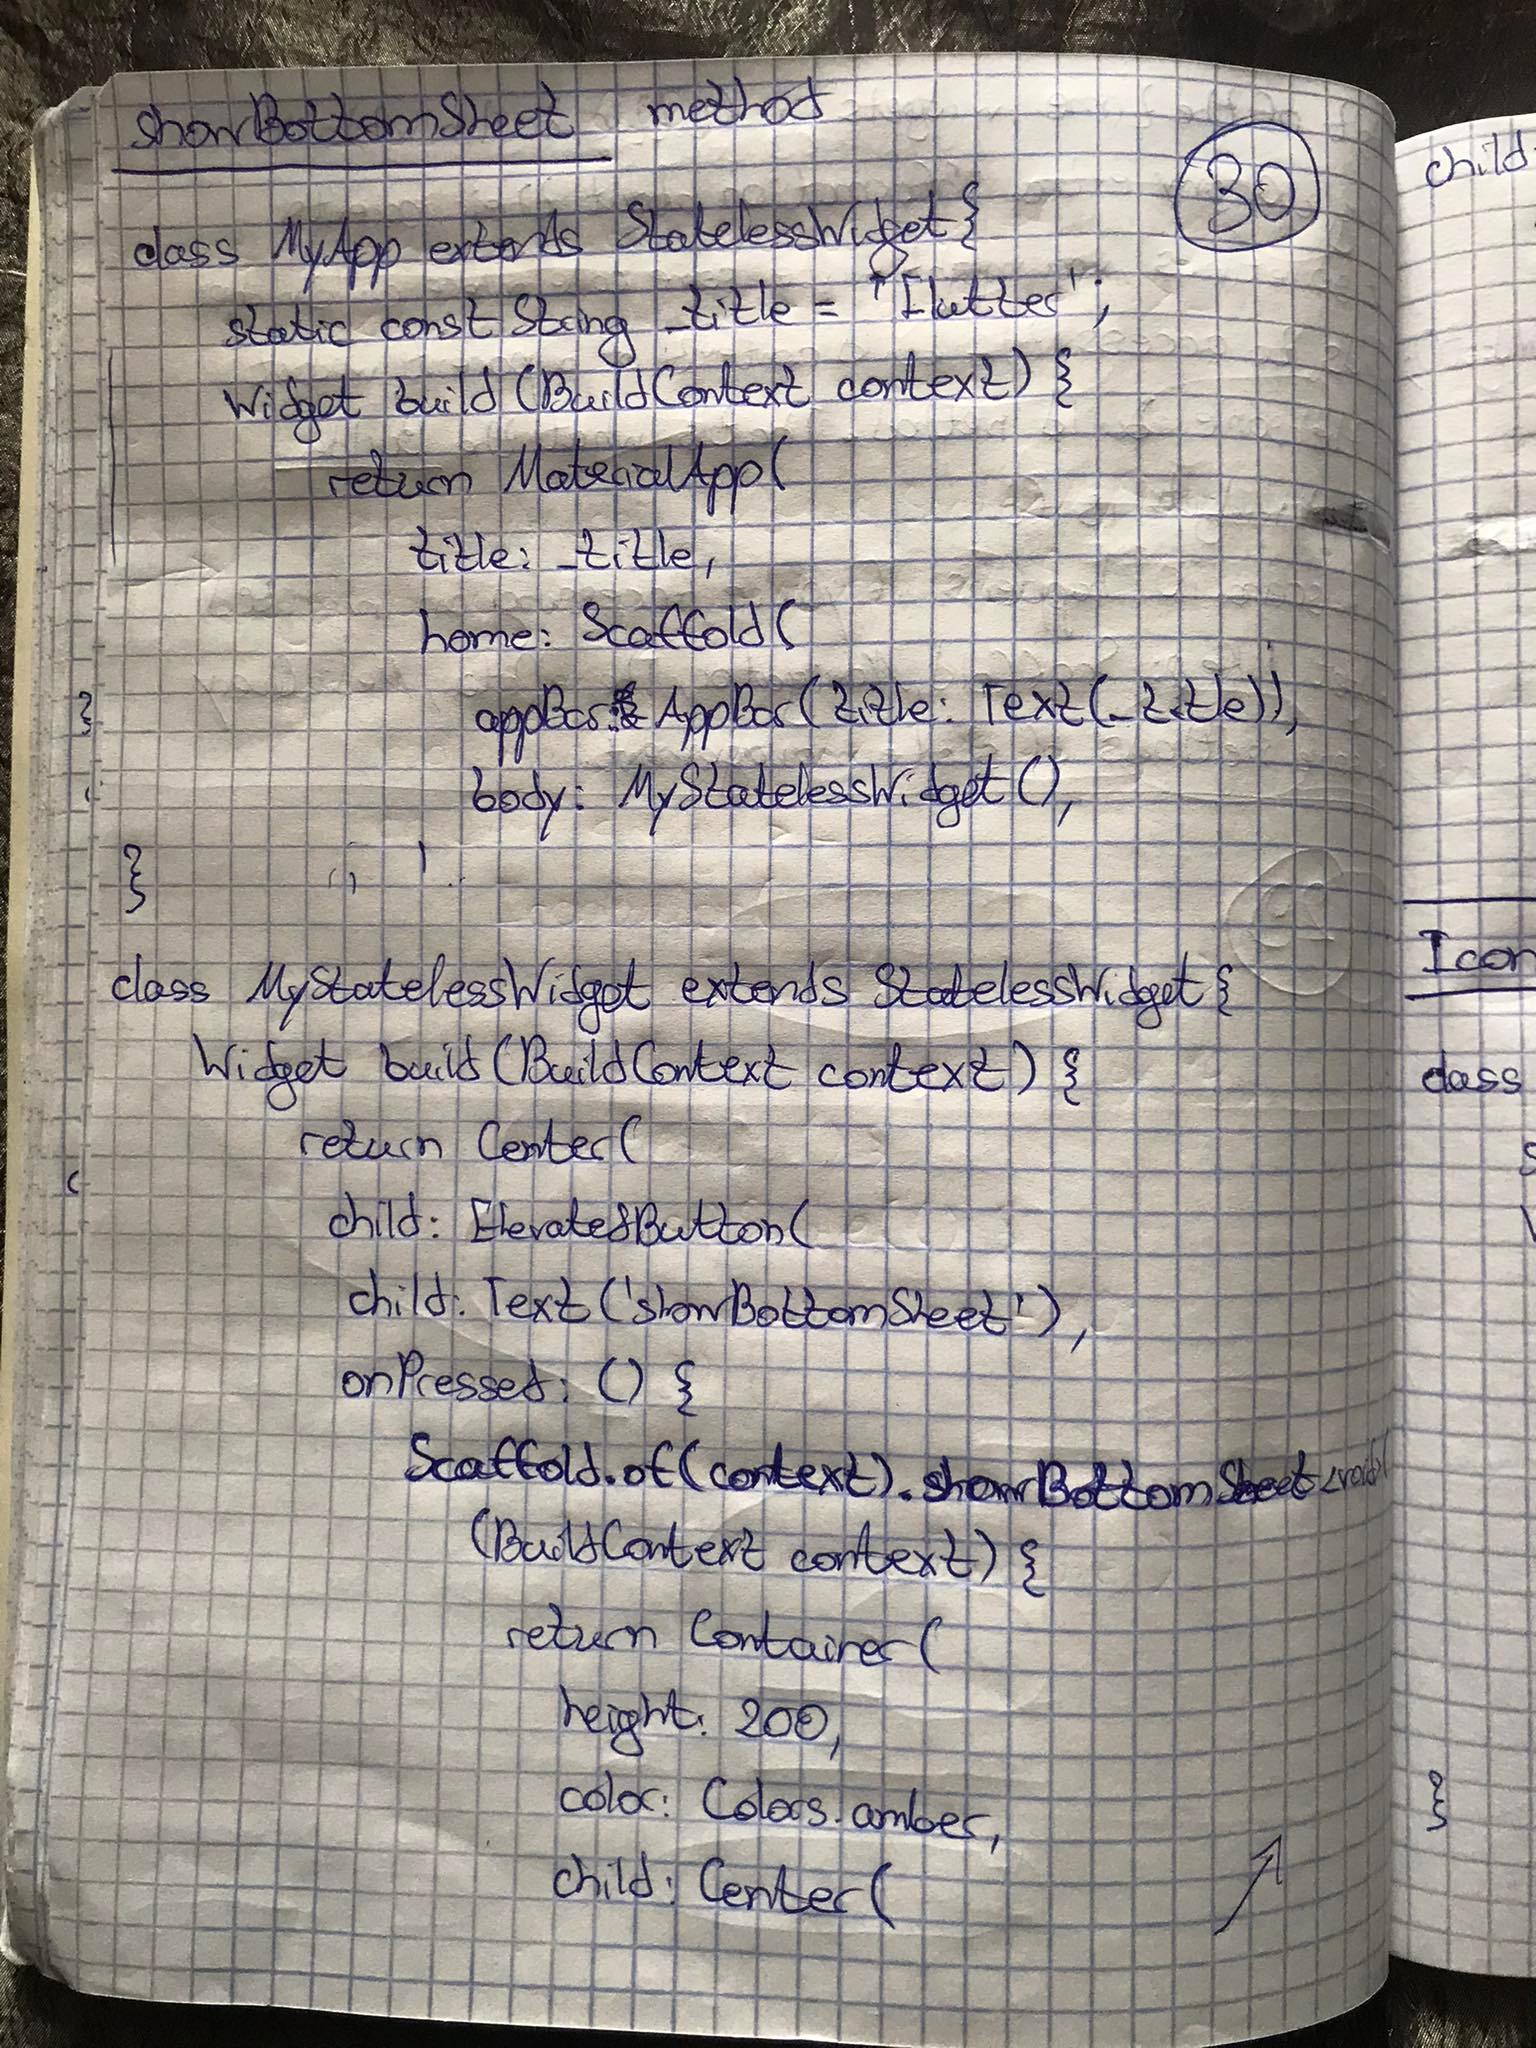 showBottomSheet method
30
class MyApp extends StatelessWidget{
static const String _title = 'Flutter';
Widget build (BuildContext context) {
return MaterialApp(
title: _title,
home: Scaffold(
appBar: AppBar(title: Text(_title)),
body: MyStatelessWidget(),
}
class MyStatelessWidget extends StatelessWidget{
Widget build (BuildContext context) {
return Center(
child: ElevatedButton(
child: Text ('showBottomSheet'),
onPressed: () {
Scaffold.of(context).showBottomSheet<void>(
(BuildContext context) {
return Container(
height: 200,
color: Colors.amber,
child: Center(
child:
Icon
class
}